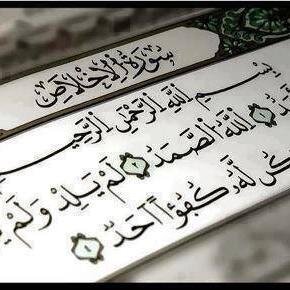 سُورَةُ الإِخْلَاصِ
بِسْمِ اللَّهِ الرَّحْمَٰنِ الرَّحِيمِ
اللَّهُ الصَّمَدُ لَمْ يَلِدْ وَلَمْ
لَّهُ كُفُوًا أَحَدٌ